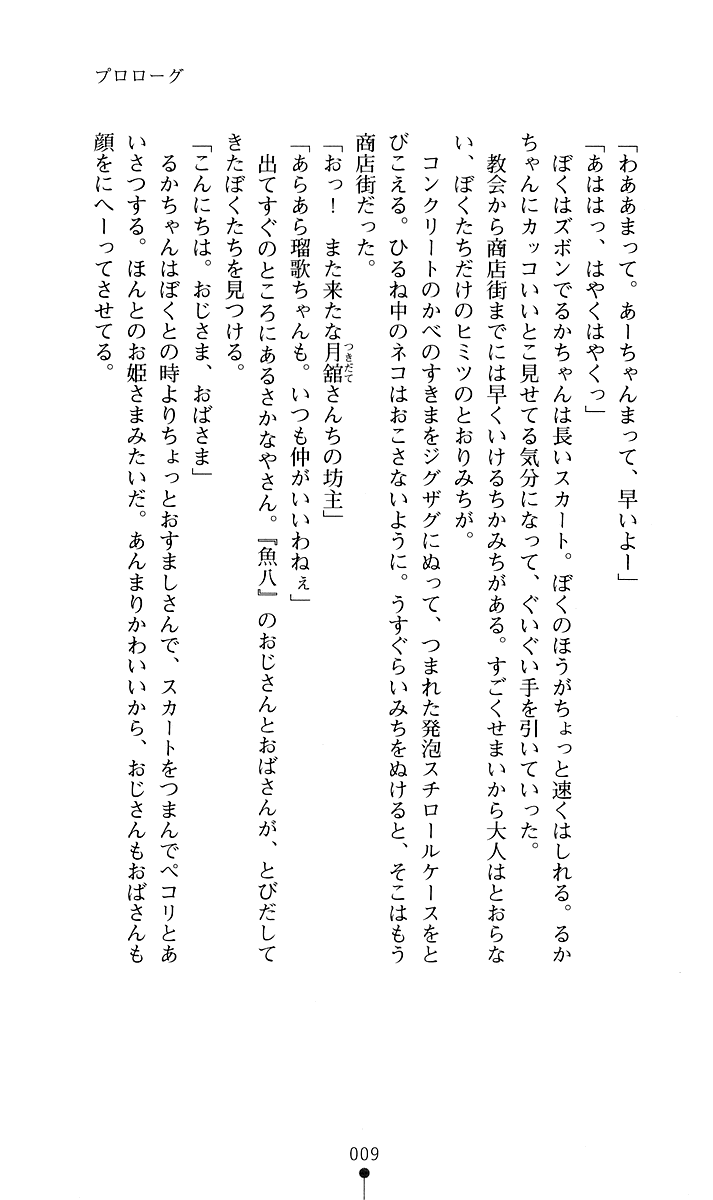 プロローグ
「わああまって。あーちゃんまって、早いよー」
「あははっ、はやくはやくっ」
　ぼくはズボンでるかちゃんは長いスカート。ぼくのほうがちょっと速くはしれる。るか
ちゃんにカッコいいとこ見せてる気分になって、ぐいぐい手を引いていった。
　教会から商店街までには早くいけるちかみちがある。すごくせまいから大人はとおらな
い、ぼくたちだけのヒミツのとおりみちが。
　コンクリートのかべのすきまをジグザグにぬって、つまれた発泡スチロールケースをと
びこえる。ひるね中のネコはおこさないように。うすぐらいみちをぬけると、そこはもう
商店街だった。
「おっ！　また来たな月舘さんちの坊主」
つきだて
「あらあら瑠歌ちゃんも。いつも仲がいいわねぇ」
　出てすぐのところにあるさかなやさん。『魚八』のおじさんとおばさんが、とびだして
きたぼくたちを見つける。
「こんにちは。おじさま、おばさま」
　るかちゃんはぼくとの時よりちょっとおすましさんで、スカートをつまんでペコリとあ
いさつする。ほんとのお姫さまみたいだ。あんまりかわいいから、おじさんもおばさんも
顔をにへーってさせてる。
009